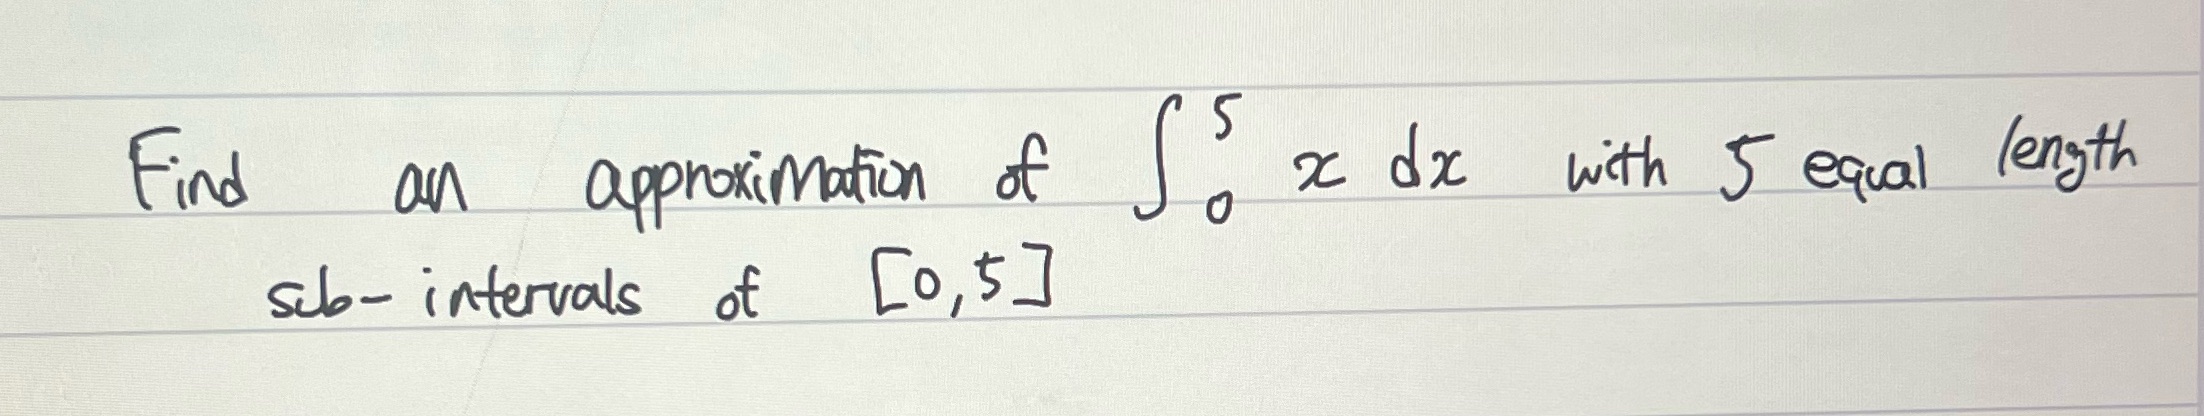 Find an approximation of ∫₀⁵ x dx with 5 equal length
sub-intervals of [0,5]